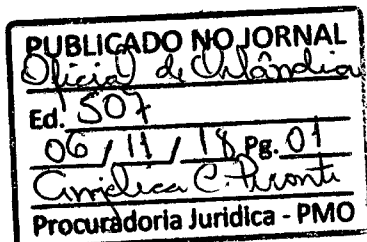 PUBLICADO NO JORNAL
Oficial de Orlândia
Ed. 507
06 / 11 / 18 Pg. 01
Angelica C. Pironti
Procuradoria Juridica - PMO